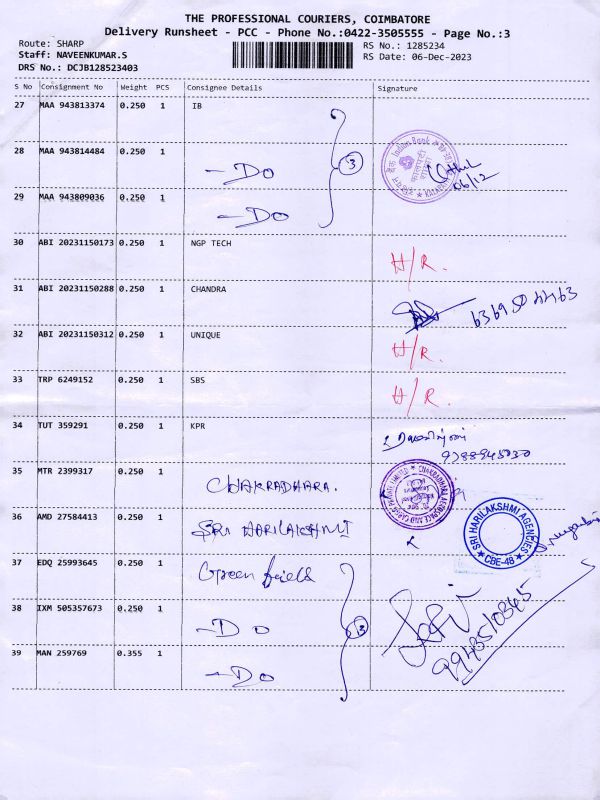 THE PROFESSIONAL COURIERS, COIMBATORE
Delivery Runsheet - PCC - Phone No.:0422-3505555 - Page No.:3
Route: SHARP
Staff: NAVEENKUMAR.S
DRS No.: DCJB128523403
RS No.: 1285234
RS Date: 06-Dec-2023
S No Consignment No Weight PCS Consignee Details Signature
27 MAA 943813374 0.250 1 IB
28 MAA 943814484 0.250 1 -Do
3
Indian Bank
06/12
29 MAA 943809036 0.250 1 -Do
30 ABI 20231150173 0.250 1 NGP TECH H/R.
31 ABI 20231150288 0.250 1 CHANDRA 6369504463
32 ABI 20231150312 0.250 1 UNIQUE H/R.
33 TRP 6249152 0.250 1 SBS H/R.
34 TUT 359291 0.250 1 KPR
9788945030
35 MTR 2399317 0.250 1 CHAKRADHARA.
CHAKRADHARA AEROSPACE AND CARGO PRIVATE LIMITED
36 AMD 27584413 0.250 1 SRI HARILAKSHMI
SRI HARILAKSHMI AGENCIES
CBE-48
37 EDQ 25993645 0.250 1 Green fields
38 IXM 505357673 0.250 1 -Do
3
9943510345
39 MAN 259769 0.355 1 -Do